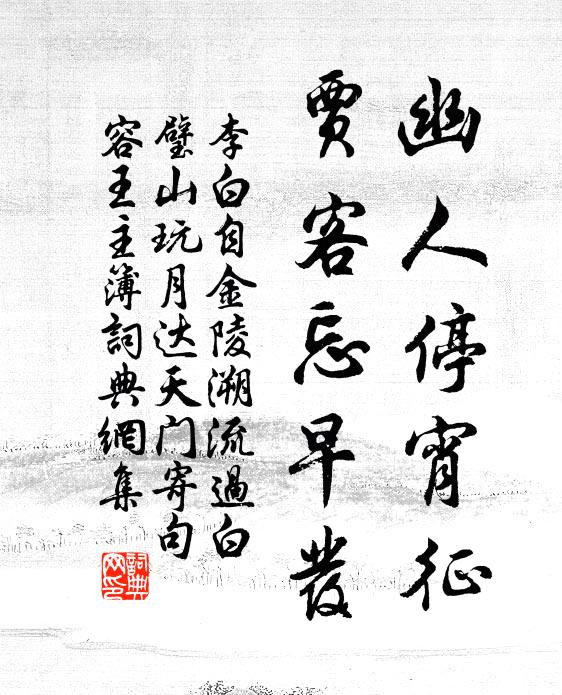 幽人停宵征
賈客忘早發
李白自金陵溯流過白
璧山玩月达天门寄句
容王主簿詞典網集
詞典
网印